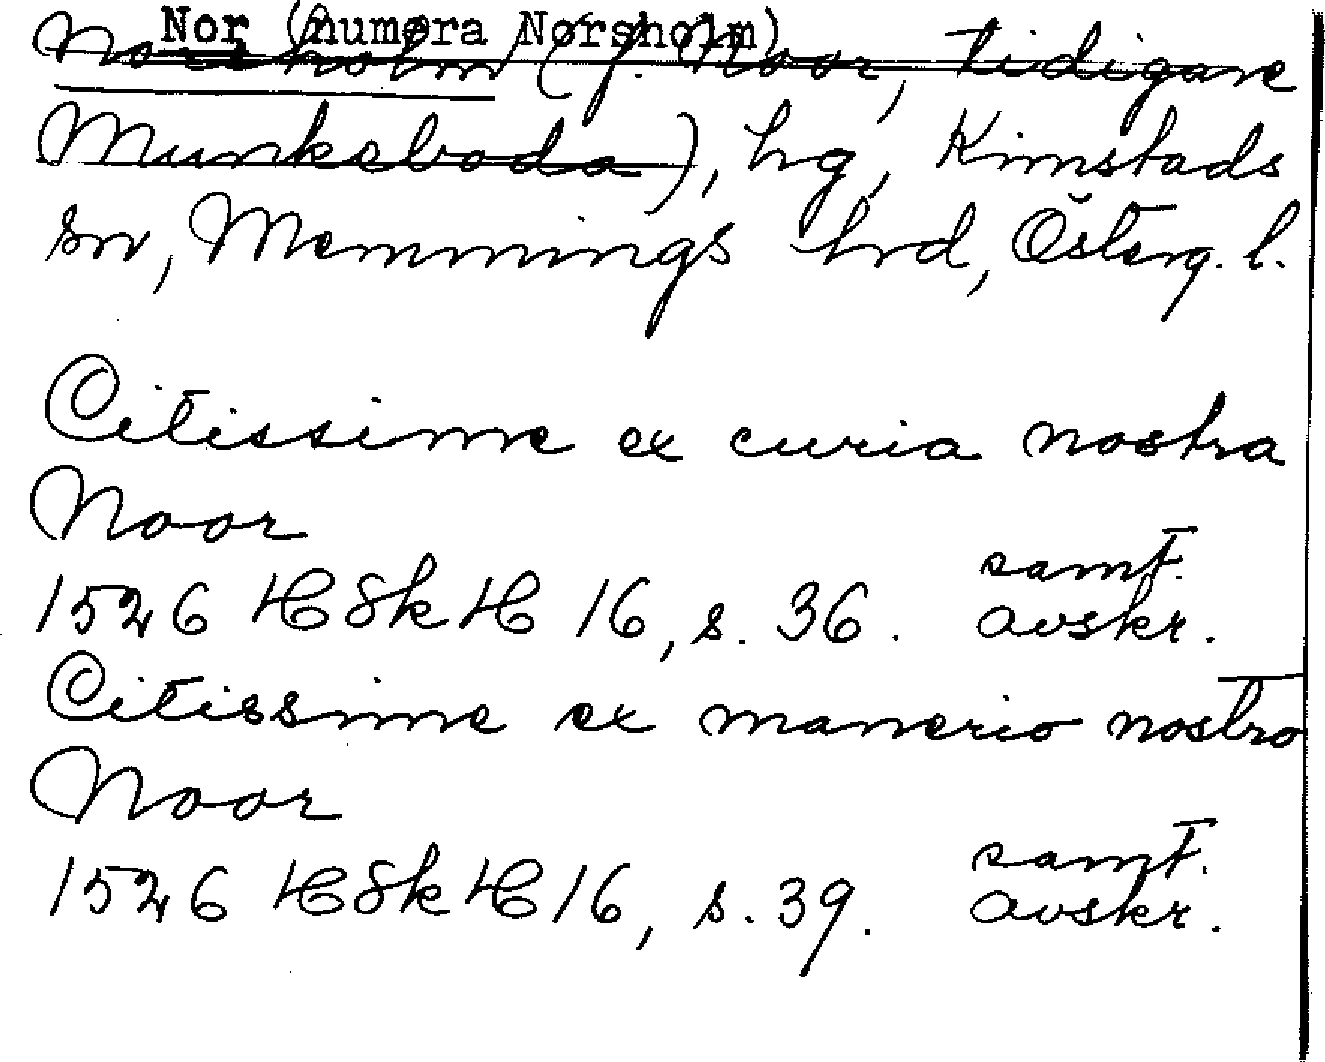 Nor (numera Norsholm)
Norsholm (f. Noor, tidigare
Munkeboda), hg, Kimstads
sn, Memmings hrd, Österg. l.
Citissime ex curia nostra
Noor
1526 HSkH 16, s. 36. samt. avskr.
Citissime ex manerio nostro
Noor
1526 HSkH 16, s. 39. samt. avskr.